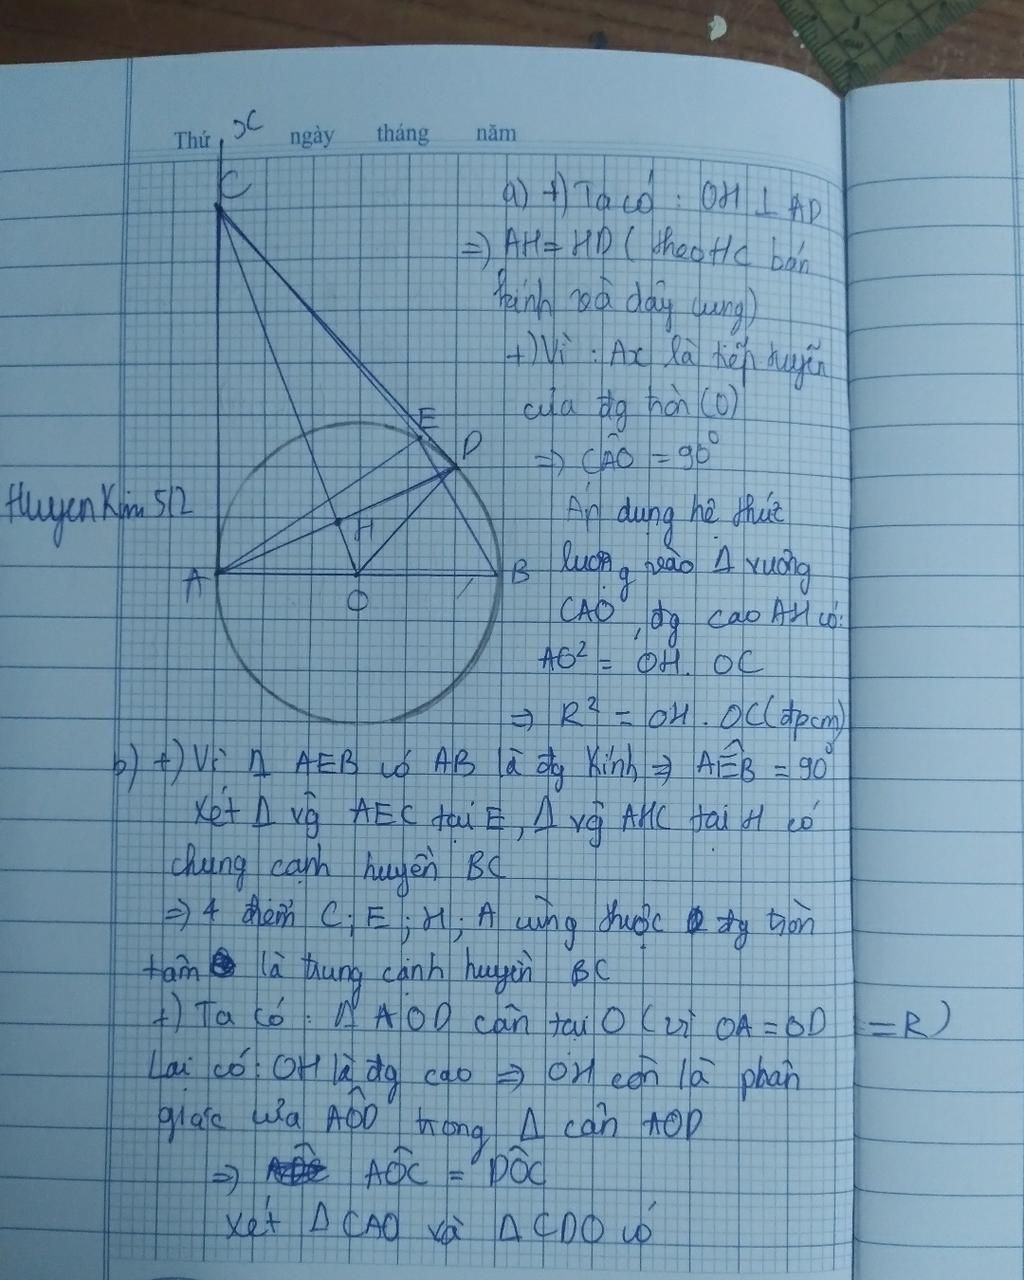 Thứ ngày tháng năm
x
C
a) +) Ta có : OH ⊥ AD
=> AH = HD ( theo HC bán
kính và dây cung)
+) Vì : Ax là tiếp tuyến
của đg tròn (O)
=> CÂO = 90°
E
D
Huyen Kim 512
H
A
B
O
Áp dụng hệ thức
lượng vào Δ vuông
CAO, đg cao AH có:
AO² = OH. OC
=> R² = OH . OC (đpcm)
b) +) Vì Δ AEB có AB là đg kính => AÊB = 90°
Xét Δ vg AEC tại E, Δ vg AHC tại H có
chung cạnh huyền BC
=> 4 điểm C; E; H; A cùng thuộc đg tròn
tâm là trung cạnh huyền BC
+) Ta có : Δ AOD cân tại O ( vì OA = OD = R )
Lại có : OH là đg cao => OH còn là phân
giác của AÔD trong Δ cân AOD
=> AÔC = DÔC
Xét Δ CAO và Δ CDO có